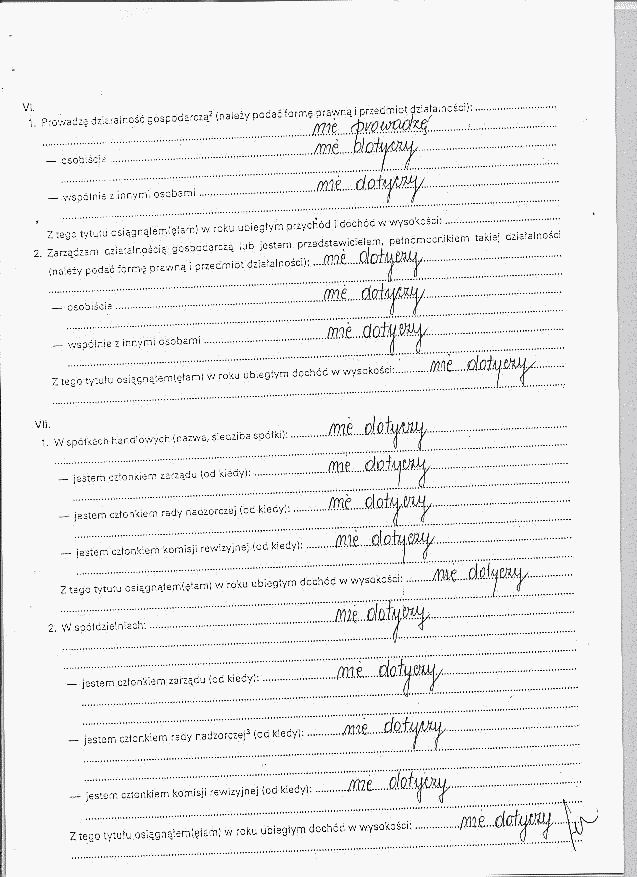 VI.
1. Prowadzę działalność gospodarczą² (należy podać formę prawną i przedmiot działalności):
nie prowadzę
— osobiście nie dotyczy
— wspólnie z innymi osobami nie dotyczy
Z tego tytułu osiągnąłem(ęłam) w roku ubiegłym przychód i dochód w wysokości:
2. Zarządzam działalnością gospodarczą lub jestem przedstawicielem, pełnomocnikiem takiej działalności
(należy podać formę prawną i przedmiot działalności): nie dotyczy
— osobiście nie dotyczy
— wspólnie z innymi osobami nie dotyczy
Z tego tytułu osiągnąłem(ęłam) w roku ubiegłym dochód w wysokości: nie dotyczy
VII.
1. W spółkach handlowych (nazwa, siedziba spółki): nie dotyczy
— jestem członkiem zarządu (od kiedy): nie dotyczy
— jestem członkiem rady nadzorczej (od kiedy): nie dotyczy
— jestem członkiem komisji rewizyjnej (od kiedy): nie dotyczy
Z tego tytułu osiągnąłem(ęłam) w roku ubiegłym dochód w wysokości: nie dotyczy
2. W spółdzielniach: nie dotyczy
— jestem członkiem zarządu (od kiedy): nie dotyczy
— jestem członkiem rady nadzorczej³ (od kiedy): nie dotyczy
— jestem członkiem komisji rewizyjnej (od kiedy): nie dotyczy
Z tego tytułu osiągnąłem(ęłam) w roku ubiegłym dochód w wysokości: nie dotyczy